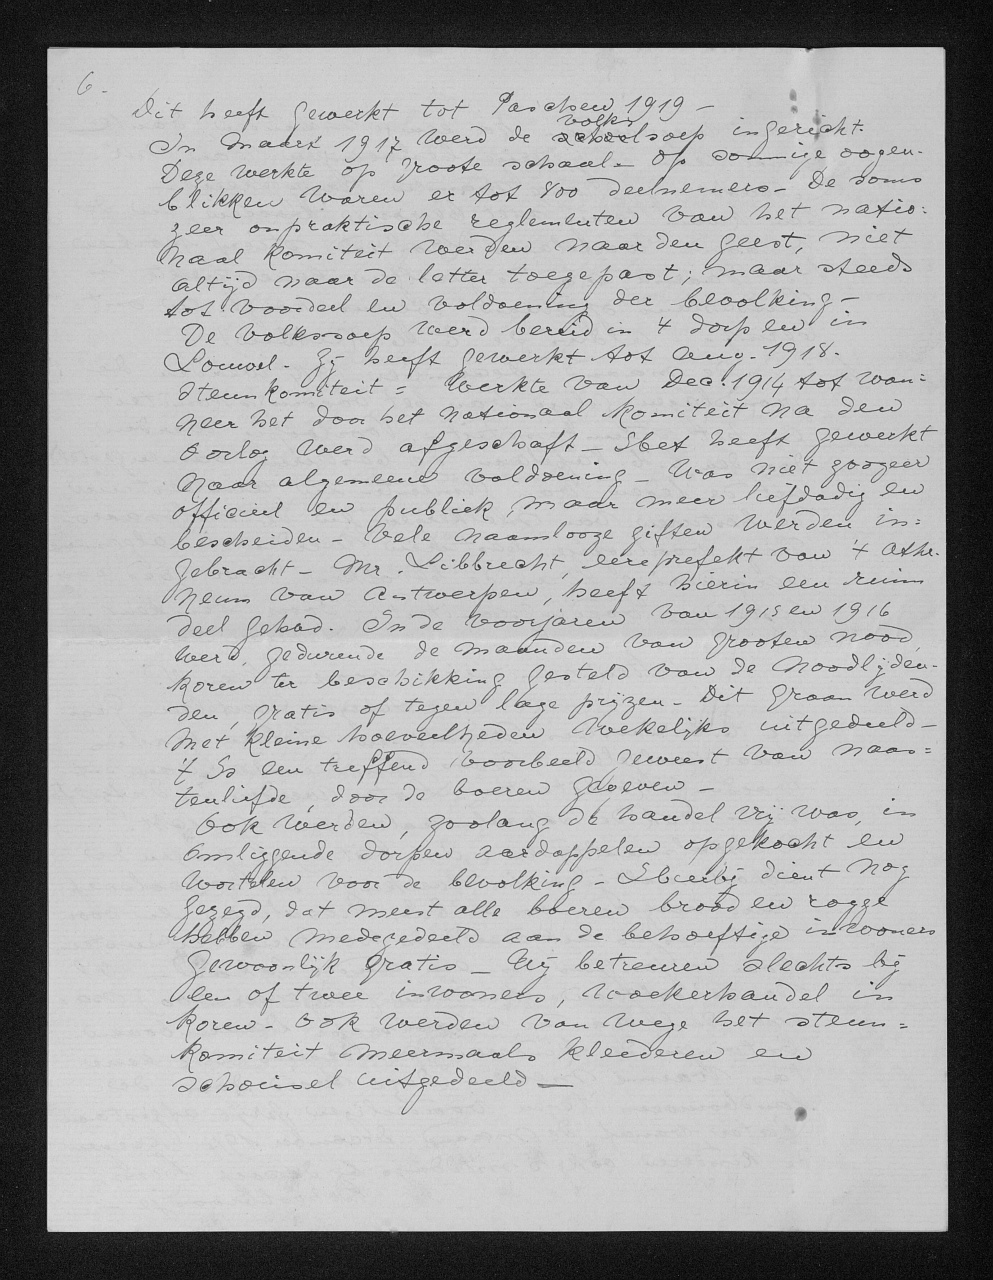 6.
Dit heeft gewerkt tot Paschen 1919 –
volks
In Maart 1917 werd de schoolsoep ingericht.
Deze werkte op groote schaal – op sommige oogen-
blikken waren er tot 800 deelnemers – De soms
zeer onpraktische reglementen van het natio=
naal komiteit werden naar den geest, niet
altijd naar de letter toegepast; maar steeds
tot voordeel en voldoening der bevolking –
De volkssoep werd bereid in 4 dorpen in
Lomvel. Zij heeft gewerkt tot Aug. 1918.
Steunkomiteit = Werkte van Dec. 1914 tot wan=
neer het door het nationaal komiteit na den
oorlog werd afgeschaft – Het heeft gewerkt
naar algemeene voldoening – Was niet zoozeer
officieel en publiek, maar meer liefdadig en
bescheiden – Vele naamlooze giften werden in=
gebracht – Mr. Libbrecht, eereprefekt van 't Athe-
neum van Antwerpen, heeft hierin een ruim
deel gehad. In de voorjaren van 1915 en 1916
werd, gedurende de maanden van grooten nood,
koren ter beschikking gesteld van de noodlijden-
den, gratis of tegen lage prijzen – Dit graan werd
met kleine hoeveelheden wekelijks uitgedeeld –
't Is een treffend voorbeeld geweest van naas=
tenliefde, door de boeren gegeven –
Ook werden, zoolang de handel vrij was, in
omliggende dorpen aardappelen opgekocht en
wortelen voor de bevolking – Hierbij dient nog
gezegd, dat meest alle boeren brood en rogge
hebben medegedeeld aan de behoeftige inwoners
gewoonlijk gratis – Wij betreuren slechts bij
een of twee inwoners, woekerhandel in
koren – Ook werden van wege het steun=
komiteit meermaals kleederen en
schoeisel uitgedeeld –